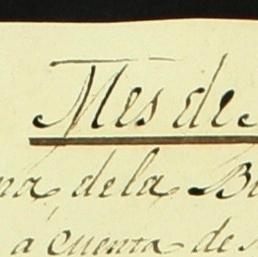 Mes de
na, dela B
a cuenta de